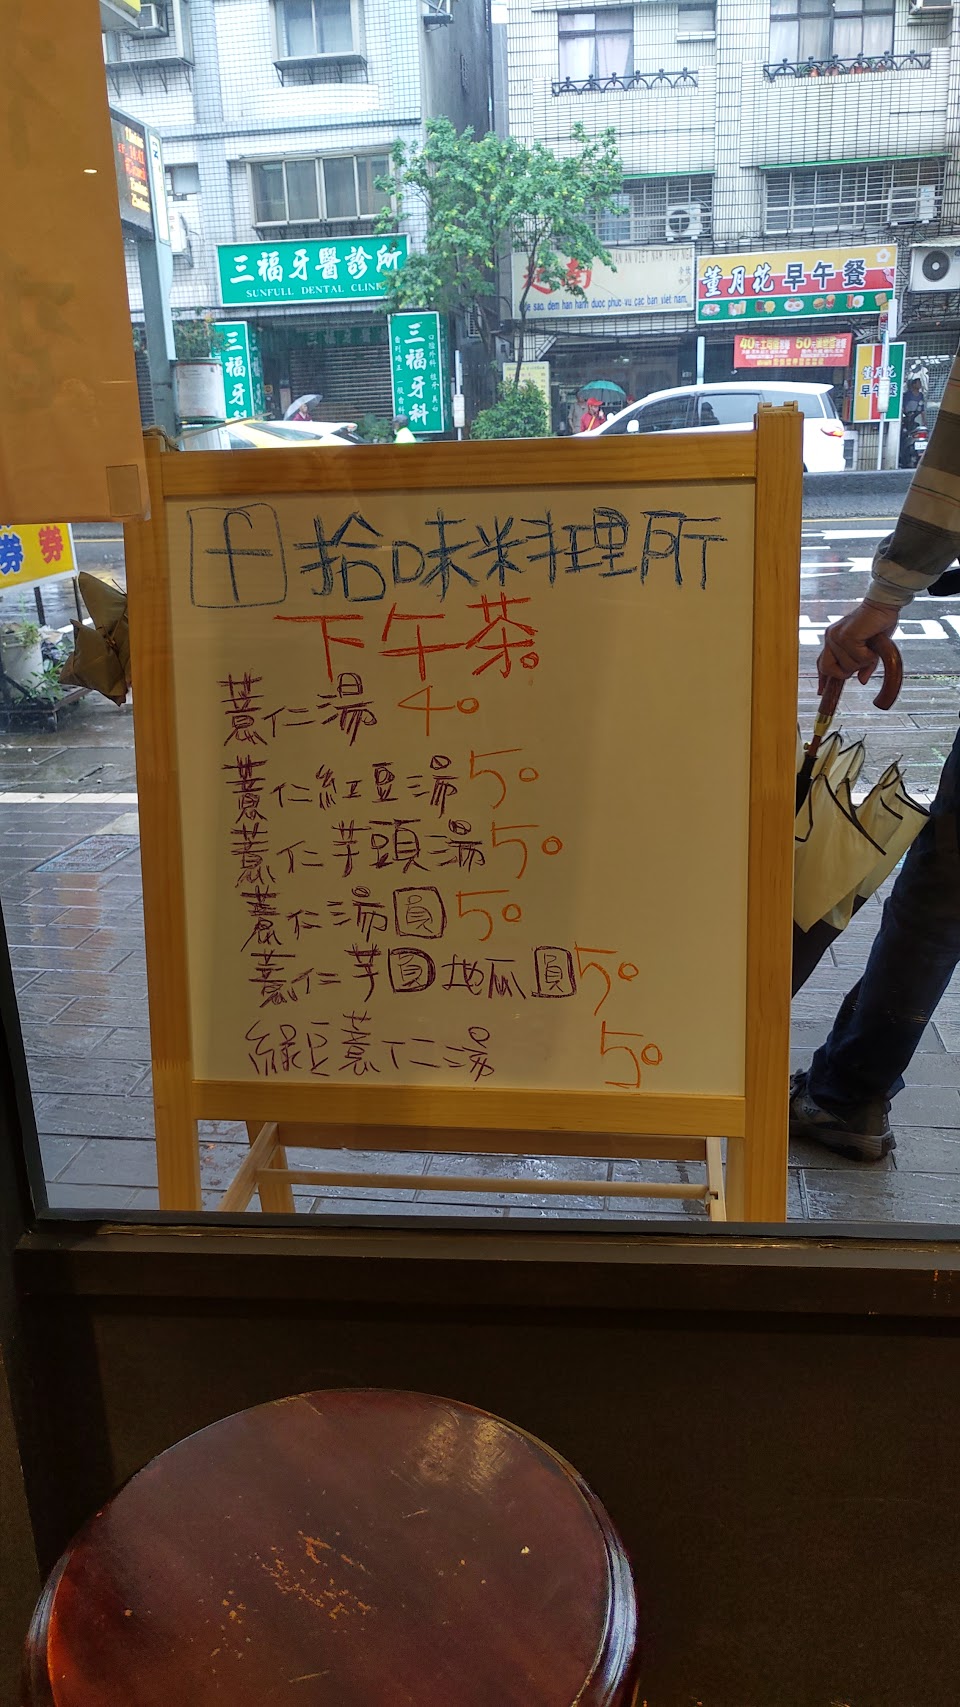 三福牙醫診所
SUNFULL DENTAL CLINIC
三福牙科
三福牙科
越南
董月花 早午餐
董月花
早午餐
券 券
十 拾味料理所
下午茶。
薏仁湯 40
薏仁紅豆湯 50
薏仁芋頭湯 50
薏仁湯圓 50
薏仁芋圓地瓜圓 50
綠豆薏仁湯 50